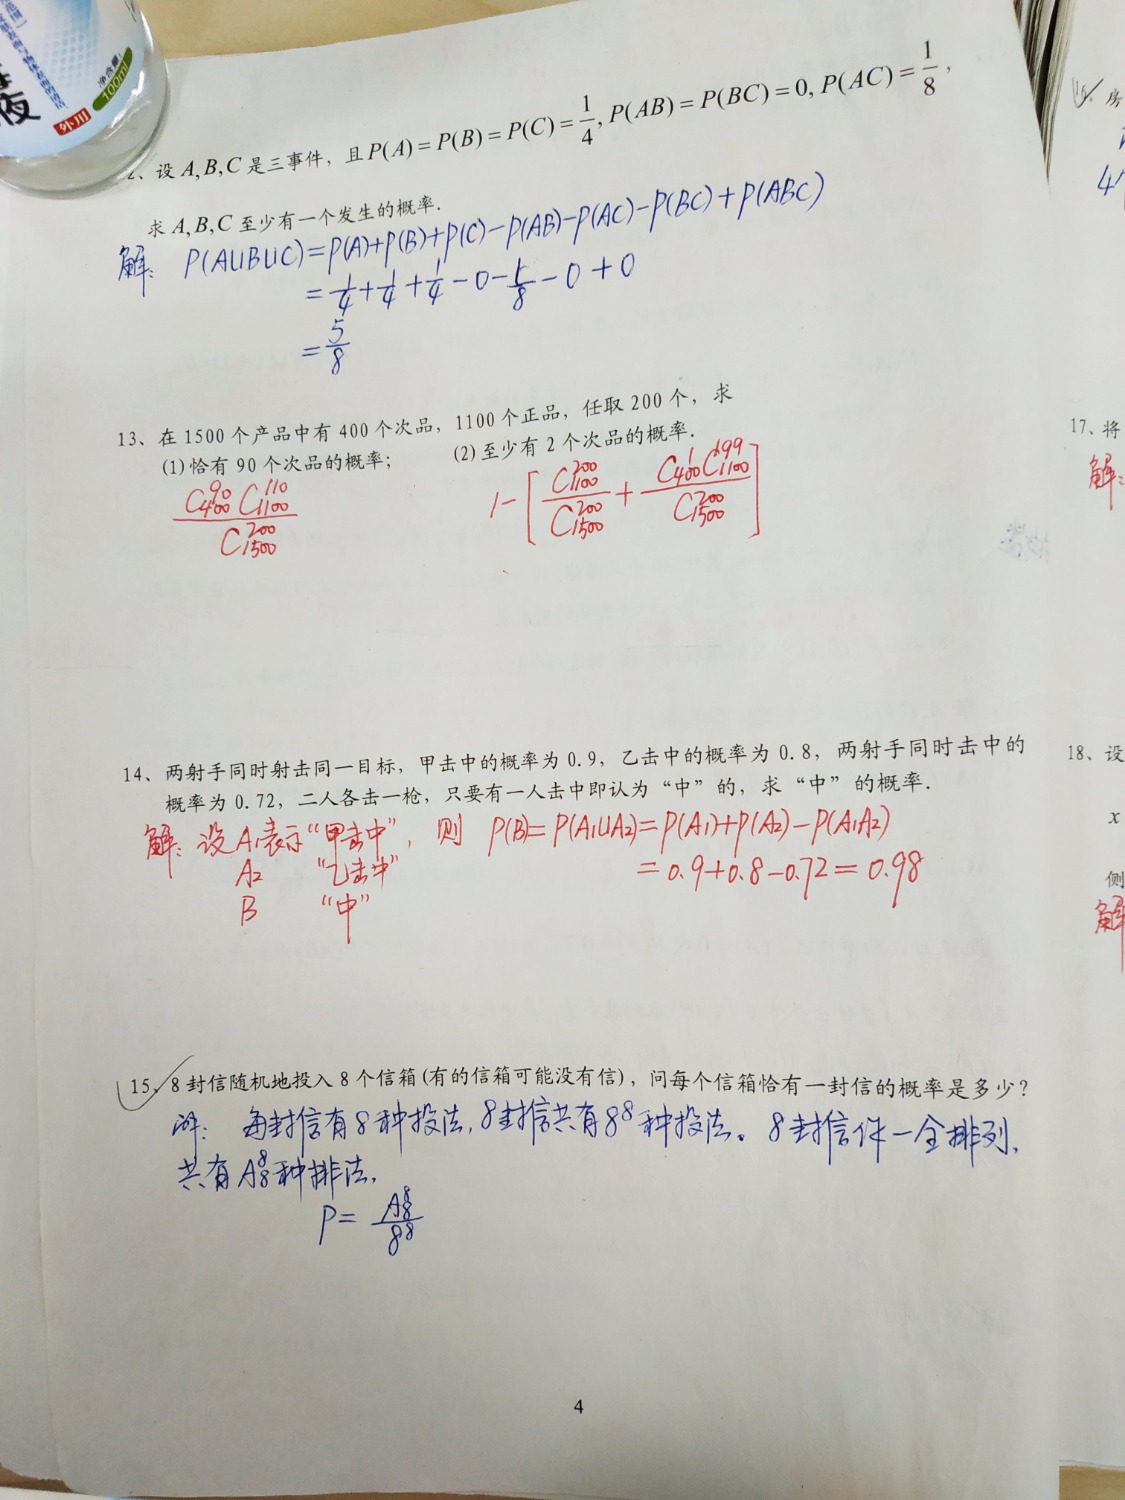 净含量:
100ml
外用
液
2、设 A,B,C 是三事件，且 P(A)=P(B)=P(C)=1/4, P(AB)=P(BC)=0, P(AC)=1/8，
求 A,B,C 至少有一个发生的概率.
解: P(A∪B∪C)=P(A)+P(B)+P(C)-P(AB)-P(AC)-P(BC)+P(ABC)
=1/4+1/4+1/4-0-1/8-0+0
=5/8
13、在 1500 个产品中有 400 个次品，1100 个正品，任取 200 个，求
(1)恰有 90 个次品的概率； (2)至少有 2 个次品的概率.
C_{400}^{90} C_{1100}^{110} / C_{1500}^{200} 1-[C_{1100}^{200}/C_{1500}^{200} + C_{400}^{1}C_{1100}^{199}/C_{1500}^{200}]
14、两射手同时射击同一目标，甲击中的概率为 0.9，乙击中的概率为 0.8，两射手同时击中的
概率为 0.72，二人各击一枪，只要有一人击中即认为“中”的，求“中”的概率.
解: 设 A₁表示“甲击中”, 则 P(B)=P(A₁∪A₂)=P(A₁)+P(A₂)-P(A₁A₂)
A₂ “乙击中” =0.9+0.8-0.72=0.98
B “中”
15、8 封信随机地投入 8 个信箱(有的信箱可能没有信)，问每个信箱恰有一封信的概率是多少?
解: 每封信有8种投法, 8封信共有8⁸种投法。8封信作一全排列,
共有A_8^8种排法,
P=A_8^8/8⁸
4
房
17、将
解:
18、设
x
侧
解